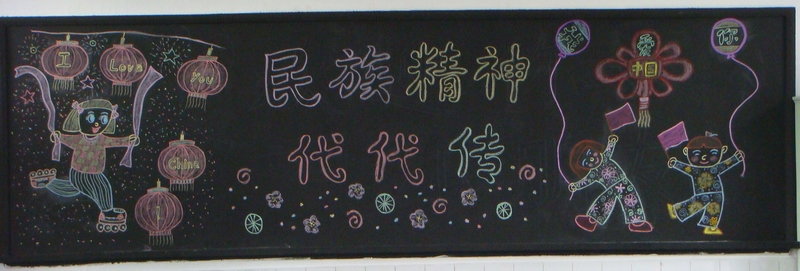 I
Love
You
China
!
民族精神
代代传
我
爱
你
中国